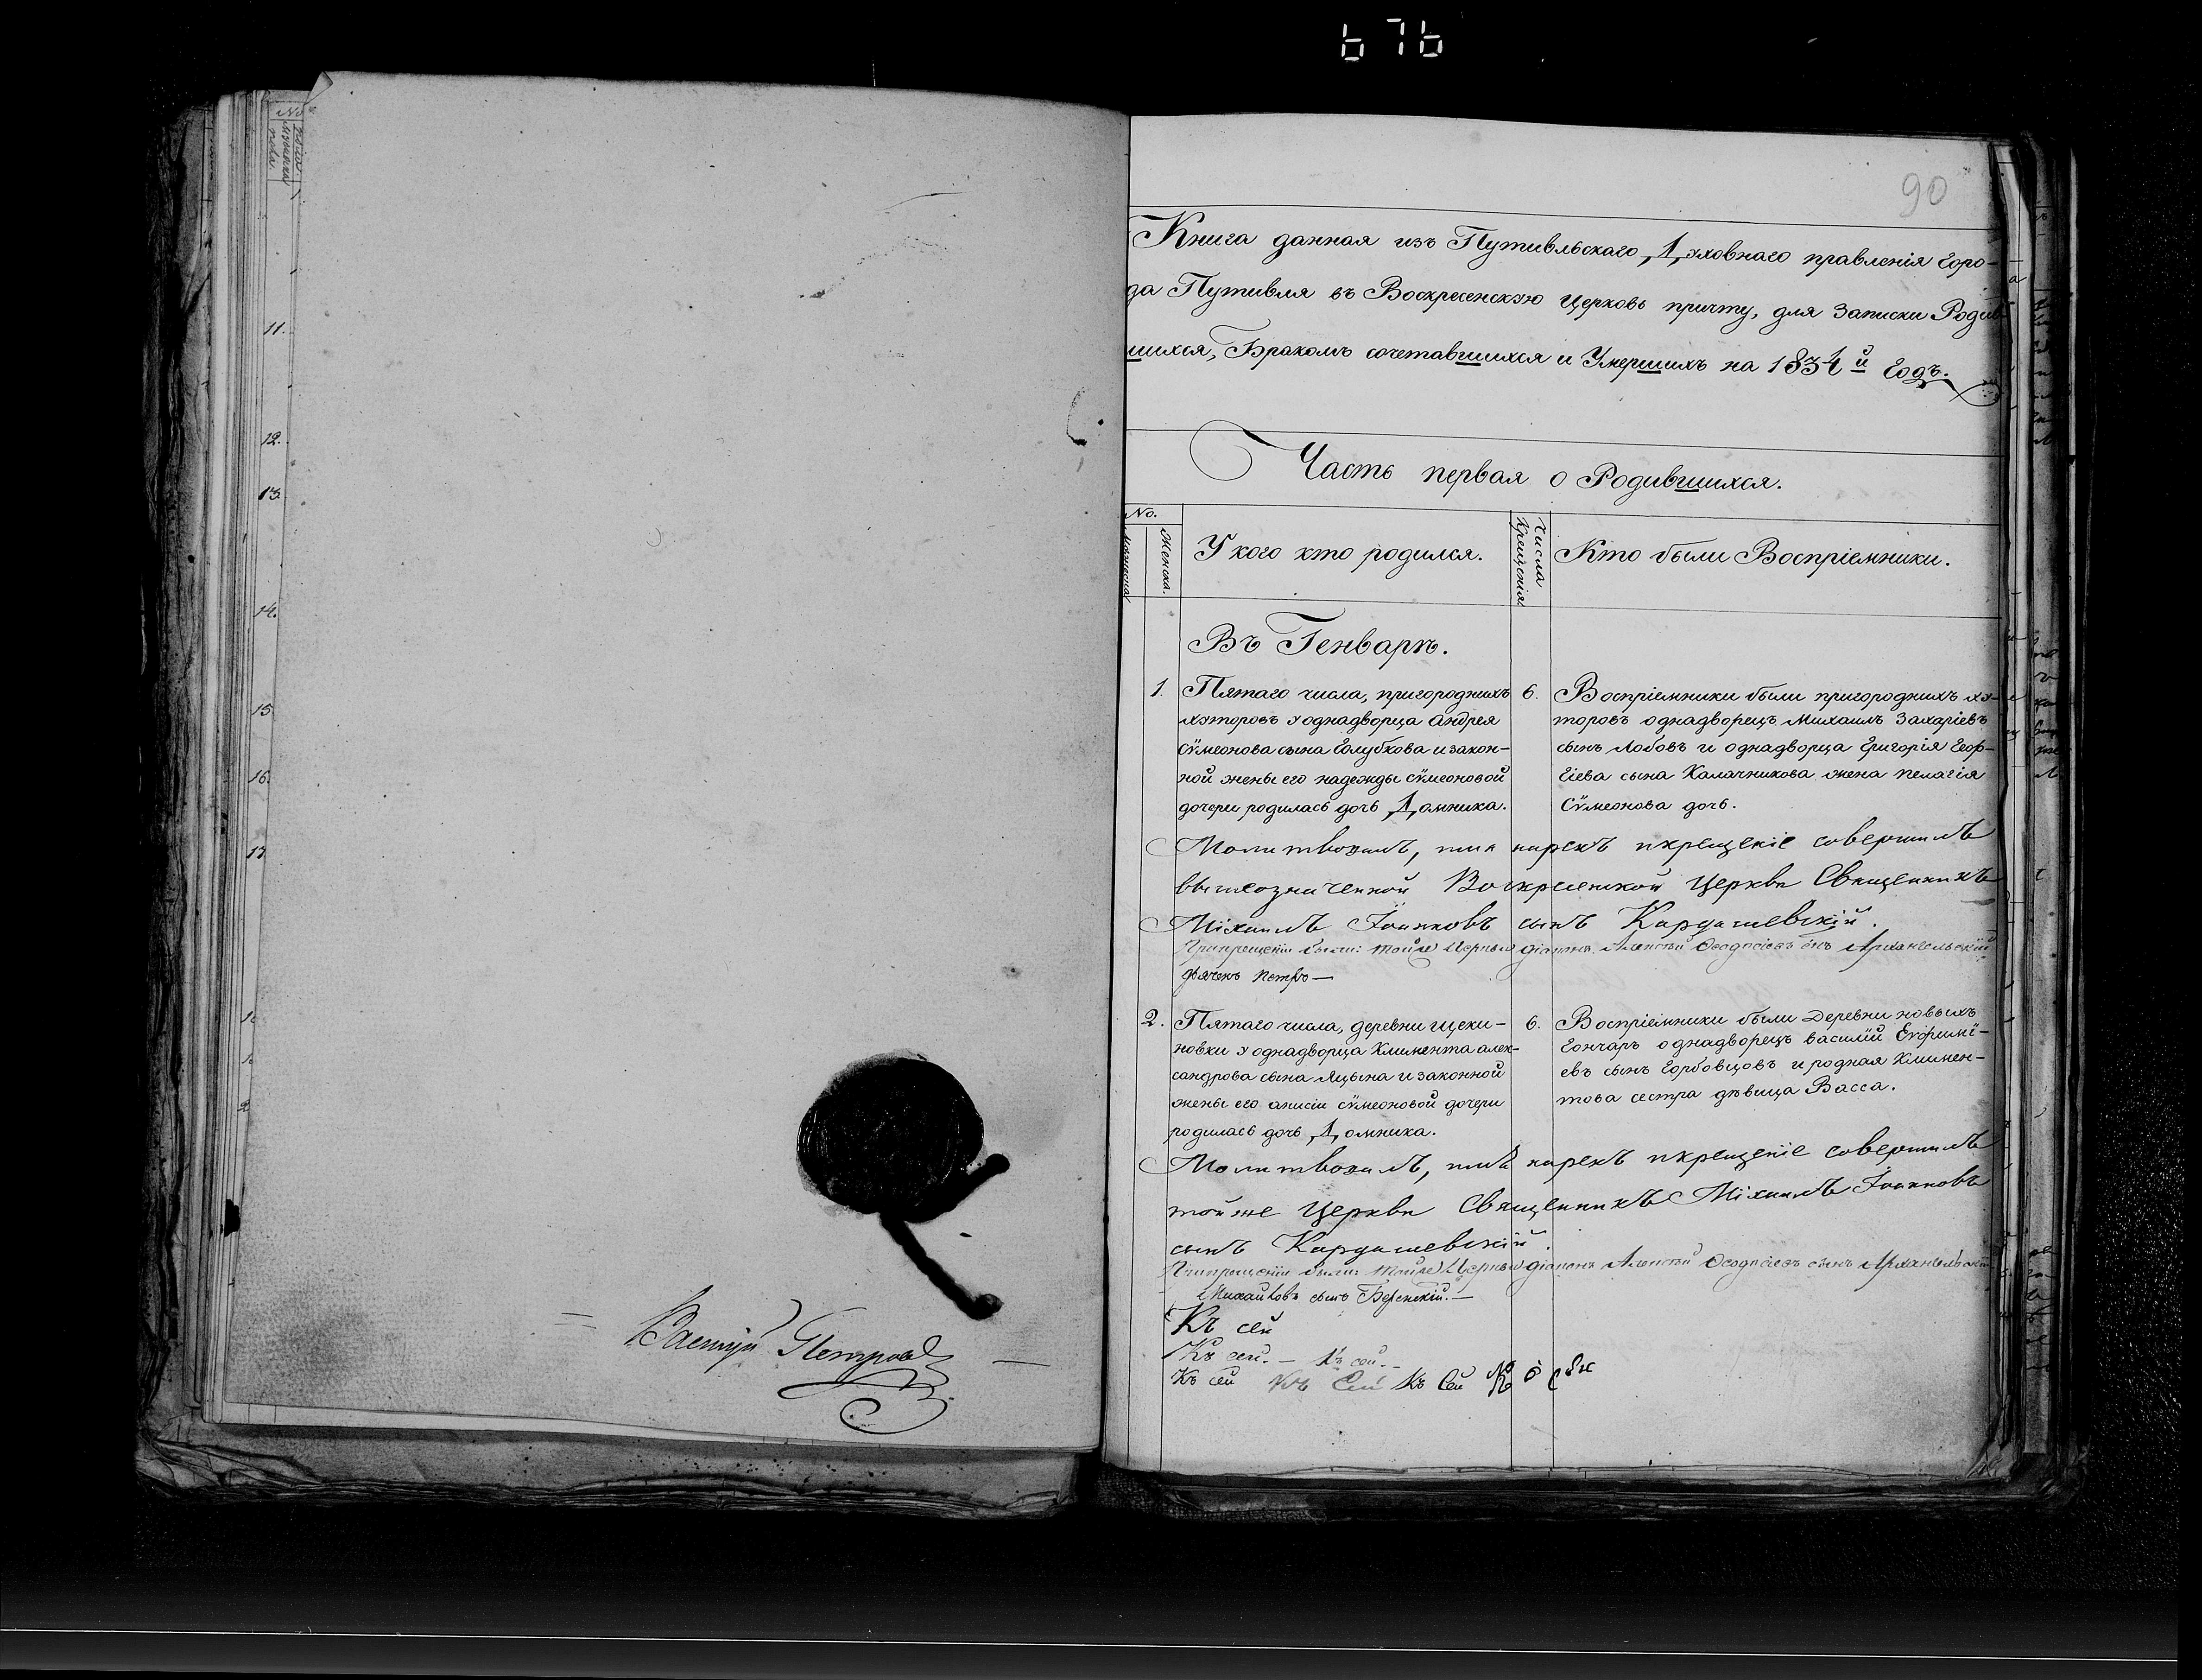 676
90
No
11.
12.
13.
14.
15.
16.
17
Книга данная изъ Путивльскаго Духовнаго правленія Горо-
да Путивля въ Воскресенскую Церковь причту, для записки Родив-
шихся, Бракомъ сочетавшихся и Умершихъ на 1834й Годъ.
Часть первая о Родившихся.
No.
Женска.
У кого кто родился.
Числа Крещенія
Кто были Воспріемники.
Въ Генварѣ.
1. Пятаго числа, пригородныхъ 6. Воспріемники были пригородныхъ ху-
хуторовъ у однадворца Андрея торовъ однадворецъ Михаилъ Захаріевъ
Сѵмеонова сына Голубкова и закон- сынъ Лобовъ и однадворца Григорія Геор-
ной жены его надежды сѵмеоновой гіева сына Калачникова жена пелагія
дочери родилась дочь Домника. Сѵмеонова дочь.
Молитвовалъ, имя нарекъ и крещеніе совершилъ
вышеозначенной Воскресенской Церкви Священникъ
Міхаилъ Іоанновъ сынъ Кардашевскій.
При крещеніи были: тойже Церкви діаконъ Алексѣй Ѳеодосіевъ снъ Архангельскій
дьячекъ Петръ —
2. Пятаго числа, деревни щеки- 6. Воспріемники были Деревни новыхъ
новки у однадворца Климента алек- Гончаръ однадворецъ василій Ефимі-
сандрова сына Яцына и законной евъ сынъ Горбовцовъ и родная Климен-
жены его анисіи сѵмеоновой дочери това сестра дѣвица Васса.
родилась дочь Домника.
Молитвовалъ, имя нарекъ и крещеніе совершилъ
тойже Церкви Священникъ Міхаилъ Іоанновъ
сынъ Кардашевскій.
При крещеніи были: тойже Церкви діаконъ Алексѣй Ѳеодосіевъ сынъ Архангельскій
Михайловъ сынъ
Къ сей
Къ сей. — Къ сей. —
Къ сей Къ Сей Къ Сей
Петровъ